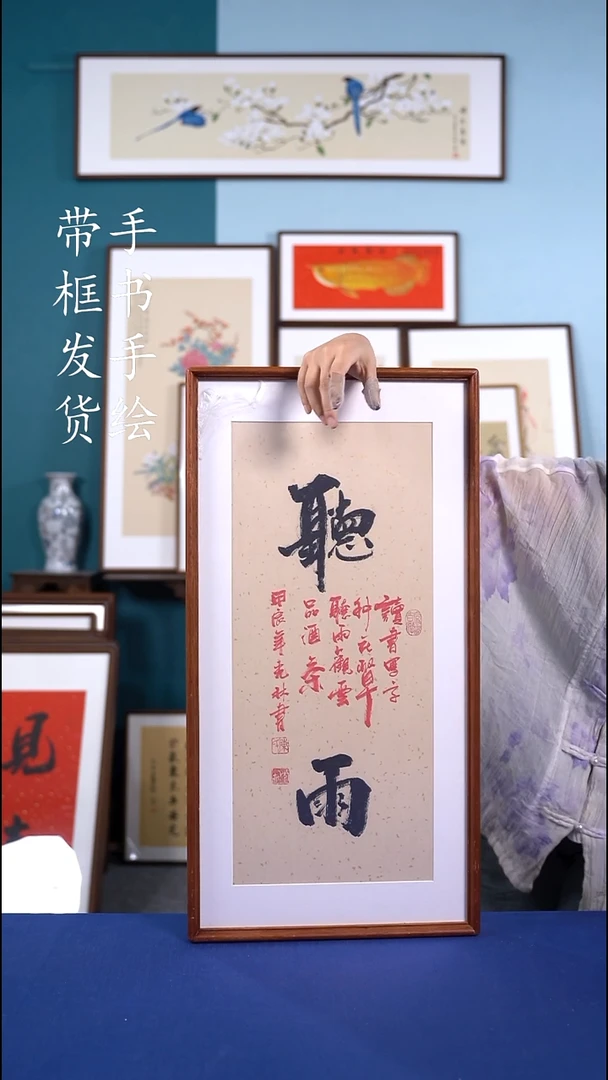 手书手绘
带框发货
聽
雨
讀書写字
种花草
聽雨觀雲
品酒茶
甲辰年
書
見